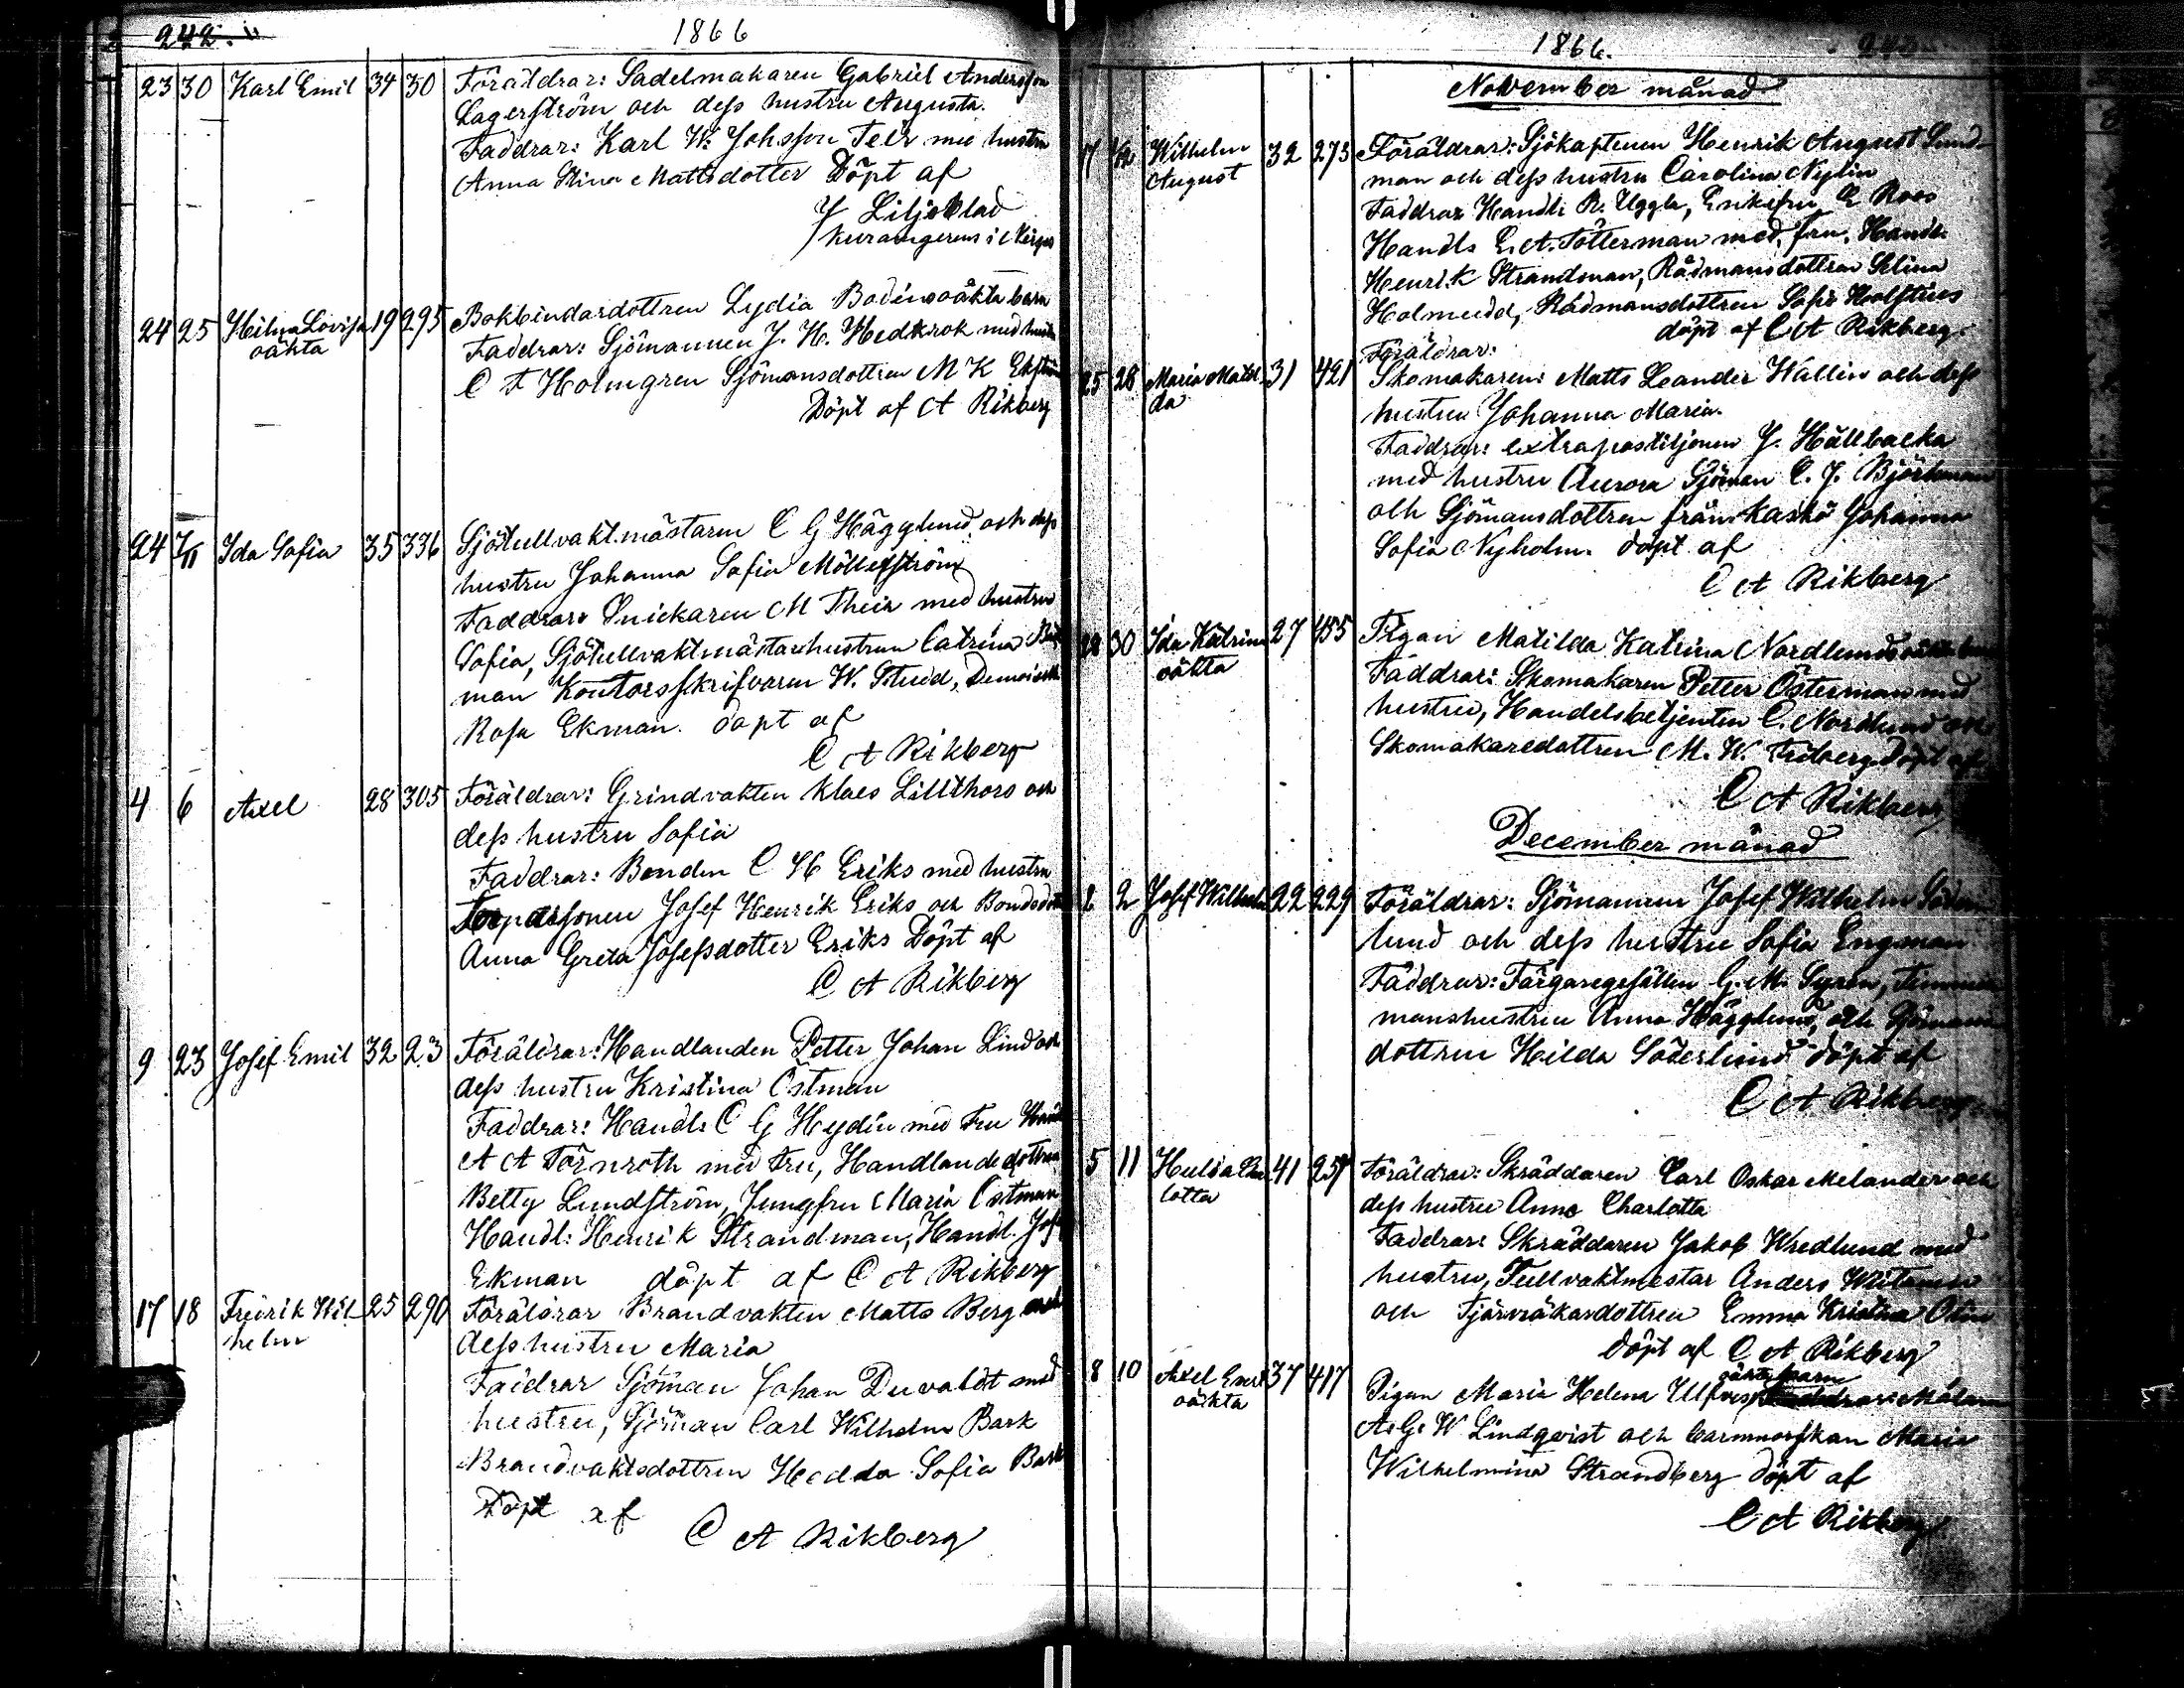 242.
1866
23 30 Karl Emil 34 30 Föräldrar: Sadelmakaren Gabriel Andersson
Lagerström och dess hustru Augusta.
Faddrar: Karl W. Johsson Teir med hustru
Anna Stina Mattsdotter Döpt af
J Liljeblad
24 25 Hilma Lovisa 19 295 Bokbindardottren Lydia Bodins oäkta barn
oäkta
Faddrar: Sjömannen J. H. Hedkrok med hustru
C F Holmgren Sjömansdottren M K
Döpt af A Rikberg
24 7/11 Ida Sofia 35 336 Sjötullvaktmästaren C G Hägglund och dess
hustru Johanna Sofia Möllerström
Faddrar: Snickaren M Their med hustru
Sofia, Sjötullvaktmästarhustrun Catrina
man Kontorsskrifvaren W. Studd, Demoiselle
Rosa Ekman. döpt af
C A Rikberg
4 6 Axel 28 305 Föräldrar: Grindvakten Klaes Lillthors och
dess hustru Sofia
Faddrar: Bonden C H Eriks med hustru
Josef Henrik Eriks och
Anna Greta Josefsdotter Eriks Döpt af
C A Rikberg
9 23 Josef Emil 32 23 Föräldrar: Handlanden Petter Johan Lind och
dess hustru Kristina Östman
Faddrar: Handl: C G Heydén med Fru
A A Törnroth med Fru, Handlandedottren
Betty Lundström, Jungfru Maria Östman
Handl: Henrik Strandman, Handl. Josef
Ekman döpt af C A Rikberg
17 18 Fredrik Wil- 25 290 Föräldrar Brandvakten Matts Berg och
helm
dess hustru Maria
Faddrar Sjöman Johan Duvaldt med
hustru, Sjöman Carl Wilhelm Bark
Brandvaktsdottren Hedda Sofia Bark
Döpt af
C A Rikberg
1866.
November månad
17 Wilhelm 32 273 Föräldrar: Sjökaptenen Henrik August Sund-
August
man och dess hustru Carolina Nylin
Faddrar Handl: R. Uggla, Enkefru E Roos
Handl: E. A. Tötterman med fru, Handl:
Henrik Strandman, Rådmansdottren Selina
Holmudd, Rådmansdottren Sofie Holstius
döpt af C A Rikberg.
Föräldrar:
25 28 Maria Matil- 31 421 Skomakaren Matts Leander Wallin och dess
da
hustru Johanna Maria.
Faddrar: extrapostiljonen J. Hällbacka
med hustru Aurora Sjöman C. J. Björkman
och Sjömansdottren från Kaskö Johanna
Sofia Nyholm. döpt af
C A Rikberg
28 30 Ida Katrina 27 455 Pigan Matilda Katrina Nordlunds oäkta barn
oäkta
Faddrar: Skomakaren Petter Österman med
hustru, Handelsbetjenten C. Nordlund och
Skomakaredottren M. W. Friberg Döpt af
C A Rikberg
December månad
2 2 Josef Wilhelm 22 229 Föräldrar: Sjömannen Josef Wilhelm Söder-
lund och dess hustru Sofia Engman
Faddrar: Färgaregesällen G. M. Syrén, Timmer
manshustrun Anna Hägglund, och Sjömans
dottren Hilda Söderlund döpt af
C A Rikberg
5 11 Hulda Cha 41 257 Föräldrar: Skräddaren Carl Oskar Melander och
lotta
dess hustru Anna Charlotta
Faddrar: Skräddaren Jakob Wredlund med
hustru, Tullvaktmestar Anders
och Tjärvräkardottren Emma Kristina
döpt af C A Rikberg
8 10 Axel Emil 37 417 Pigan Maria Helena oäkta barn
oäkta
A. G. W Lindqvist och barnmorskan Maria
Wilhelmina Strandberg döpt af
C A Rikberg